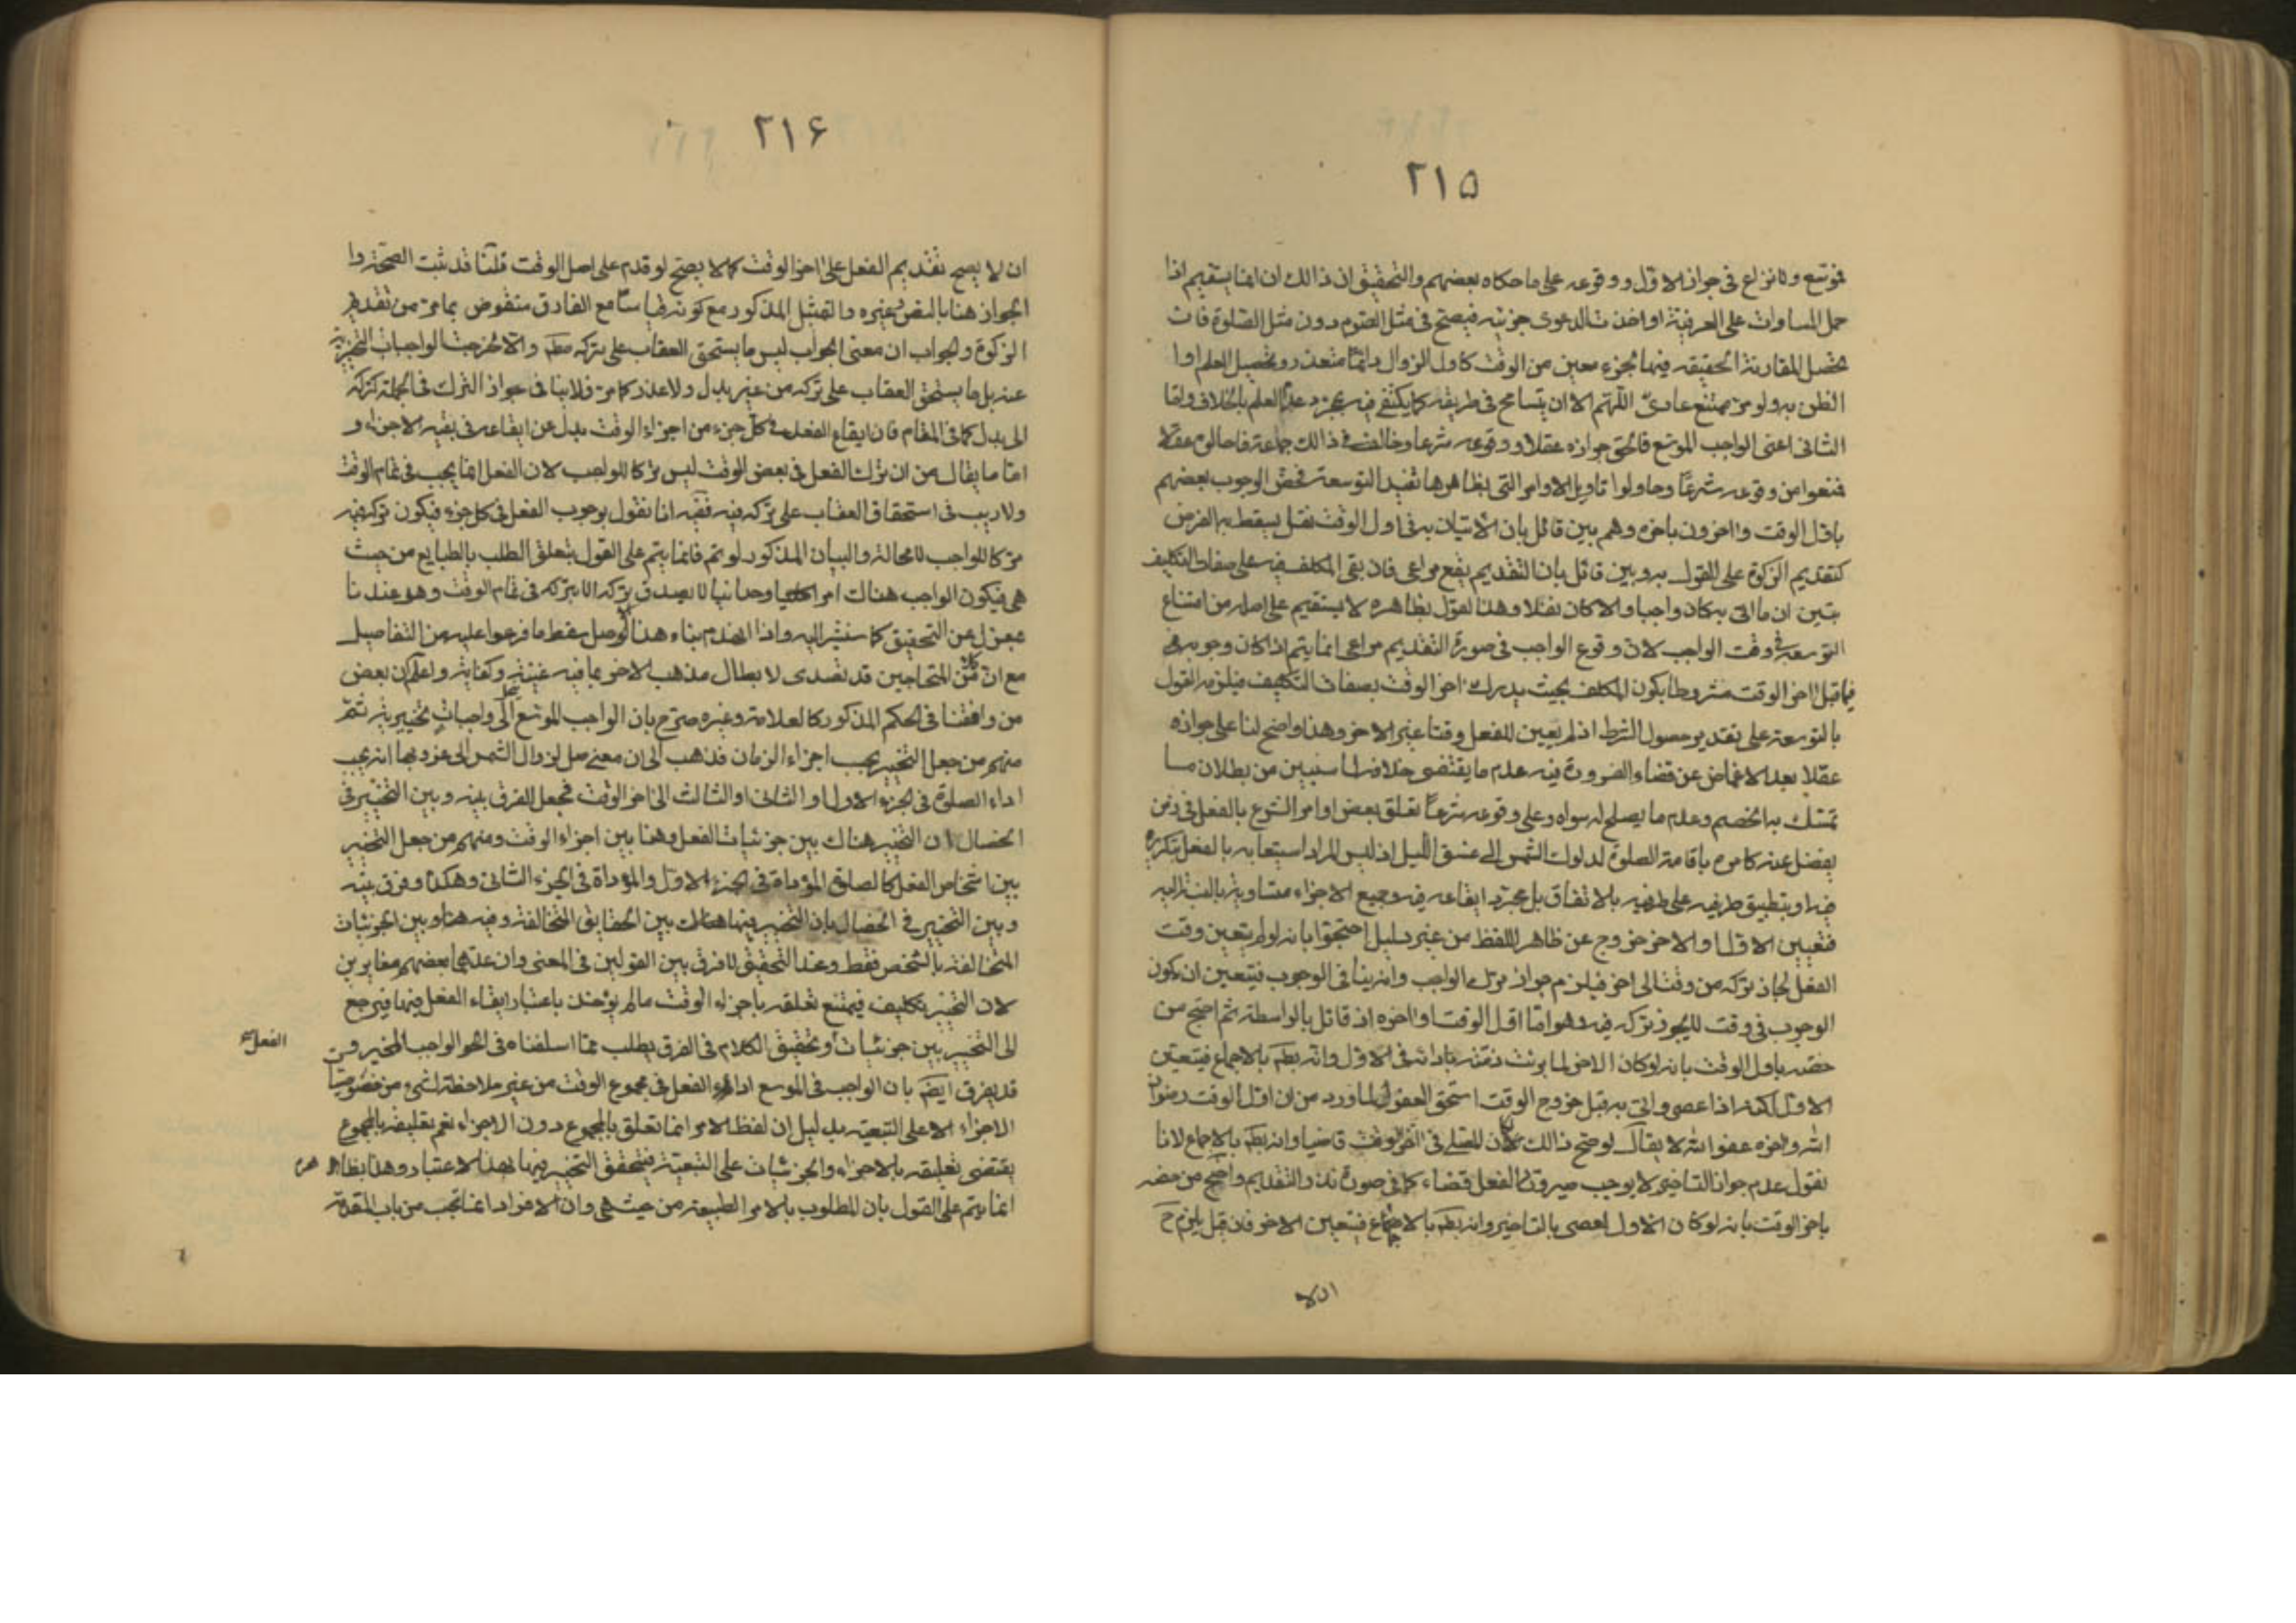 ٢١۵
فموسّع ولا نزاع فى جواز الاوّل ووقوعه على ما حكاه بعضهم والتحقيق ان ذالك ان انما يستقيم اذا
حمل المساوات على العرفية او اخذت الدعوى جزئيه فيصح فى مثل الصوم دون مثل الصلوة فان
تحصل المقارنة الحقيقه فيها بجزء معين من الوقت كاول الزوال دائما متعذر وتحصيل العلم او ا
الظن به ولو مرة ممتنع عادىّ اللّهم الا ان يتسامح فى طريقه كما يكتفى فيه بمجرد عدم العلم بالخلاف ولقا
الثانى اعنى الواجب الموسّع فالحق جوازه عقلا ووقوعه شرعا وخالف فى ذالك جماعة فاحالوه عقلا
فمنعوا من وقوعه شرعًا وحاولوا تاويل الاوامر التى بظاهرها تفيد التوسعة فخصّ الوجوب بعضهم
باوّل الوقت واٰخرون باخره وهم بين قائل بان الاتيان به فى اول الوقت نفل يسقط به الفرض
كتقديم الزكوة على القول به وبين قائل بان التقديم يقع مراعى فان بقى المكلف فيه على صفات التكليف
تبين ان ما اتى به كان واجبا والا كان نفلا وهذا القول بظاهره لا يستقيم على اصله من امتناع
التوسعه فى وقت الواجب لان وقوع الواجب فى صورة التقديم مراعى انما يتم اذا كان وجوبه فى
فيما قبل اٰخر الوقت مشروطا بكون المكلف بحيث يدرك اٰخر الوقت بصفات التكليف فيلزمه القول
بالتوسعة على تقدير حصول الشرط اذ لم يعين للفعل وقتا غير الاخر وهذا واضح لنا على جوازه
عقلا بعد الاغماض عن قضاء الضرورة فيه عدم ما يقتضى خلافه لما سنبين من بطلان ما
تمسّك به الخصم وعدم ما يصلح له سواه وعلى وقوعه شرعًا تعلق بعض اوامر الشرع بالفعل فى زمن
يفضل عنه كامره باقامة الصلوة لدلوك الشمس الى غسق الليل اذ ليس المراد استيعابه بالفعل بتكرره
فيه او بتطبيق طرفيه على طرفيه بالاتفاق بل مجرّد ايقاعه فيه وجميع الاجزاء متساوية بالنسبة اليه
فتعيين الاوّل او الاخر خروج عن ظاهر اللفظ من غير دليل احتجوا بانه لو لم يتعين وقت
الفعل لجاز تركه من وقت الى اخر فيلزم جواز ترك الواجب وانه ينافى الوجوب فيتعين ان يكون
الوجوب فى وقت لا يجوز تركه فيه وهو اما اوّل الوقت او اٰخره اذ لا قائل بالواسطة ثم احتج من
خصّه باول الوقت بانه لو كان الاخر لما برئت ذمّته بادائه فى الاوّل وانه بط بالاجماع فيتعيّن
الاوّل لكنه اذا عصى واتى به قبل خروج الوقت استحق العفو لما ورد من ان اوّل الوقت رضوان
اللّه واٰخره عفو اللّه لا يقال لو صح ذالك لكان المصلى فى اٰخر الوقت قاضيا وانه بط بالاجماع لانا
نقول عدم جواز التاخير لا يوجب صيرورة الفعل قضاء كما فى صورة نذر التقديم واحتج من خصه
باخر الوقت بانه لو كان الاول لعصى بالتاخير وانه بط بالاجماع فيتعين الاخر فان قيل يلزم ح
ان لا
٢١۶
ان لا يصح تقديم الفعل على اٰخر الوقت كما لا يصح لو قدم على اصل الوقت قلنا قد ثبت الصحة وا
الجواز هنا بالنص وغيره والتمثيل المذكور مع كونه قياسا مع الفارق منقوض بما مرّ من تقديم
الزكوة والجواب ان معنى الواجب ليس ما يستحق العقاب على تركه مط والا لخرجت الواجبات التخييرية
عنه بل ما يستحق العقاب على تركه من غير بدل ولا عذر كما مرّ فلا ينافى جواز الترك فى الجملة كتركه
الى بدل كما فى المقام فان ايقاع الفعل فى كلّ جزء من اجزاء الوقت بدل عن ايقاعه فى بقية الاجزاء و
امّا ما يقال من ان ترك الفعل فى بعض الوقت ليس تركا للواجب لان الفعل انما يجب فى تمام الوقت
ولا ريب فى استحقاق العقاب على تركه فيه ففيه انا نقول بوجوب الفعل فى كل جزء فيكون تركه فيه
تركا للواجب لا محالة والبيان المذكور لو تم فانما يتم على القول بتعلق الطلب بالطبايع من حيث
هى فيكون الواجب هناك امرا كليا وحدانيا لا يصدق تركه الا بتركه فى تمام الوقت وهو عندنا
بمعزل عن التحقيق كما سنشير اليه واذا انهدم بناء هذا الاصل سقط ما فرعوا عليه من التفاصيل
مع ان كلا من المتحاجين قد تصدى لابطال مذهب الاخر بما فيه غنية وكفاية واعلم ان بعض
من وافقنا فى الحكم المذكور كالعلامة وغيره صرّح بان الواجب الموسّع ينحل الى واجبات تخييرية ثمّ
منهم من جعل التخيير بحسب اجزاء الزمان فذهب الى ان معنى صل لزوال الشمس الى غروبها انه يجب
اداء الصلوة فى الجزء الاول او الثانى او الثالث الى اٰخر الوقت فجعل الفرق بينه وبين التخيير فى
الخصال ان التخيير هناك بين جزئيات الفعل وهنا بين اجزاء الوقت ومنهم من جعل التخيير
بين اشخاص الفعل كالصلوة المؤداة فى الجزء الاوّل والمؤداة فى الجزء الثانى وهكذا وفرق بينه
وبين التخيير فى الخصال بان التخيير فيها هناك بين الحقايق المتخالفة وفيه هنا وبين الجزئيات
المتخالفة بالشخص فقط وعند التحقيق لا فرق بين القولين فى المعنى وان عدهما بعضهم مغايرين
لان التخيير تكليف فيمتنع تعلقه باجزاء الوقت ما لم يؤخذ باعتبار ايقاء الفعل فيها فيرجع
الى التخيير بين جزئيات وتحقيق الكلام فى الفرق يطلب ممّا اسلفناه فى الواجب المخير و
الفعل
قد يفرق ايض بان الواجب فى الموسع اداء الفعل فى مجموع الوقت من غير ملاحظة لشىء من خصوصيات
الاجزاء الا على التبعية بدليل ان لفظ الامر انما تعلق بالمجموع دون الاجزاء نعم تعليقه بالمجموع
يقتضى تعليقه بالاجزاء والجزئيات على التبعية فيتحقق التخيير فيها بهذا الاعتبار وهذا بظاهره
انما يتم على القول بان المطلوب بالامر الطبيعة من حيث هى وان الافراد انما تجب من باب المقدمة